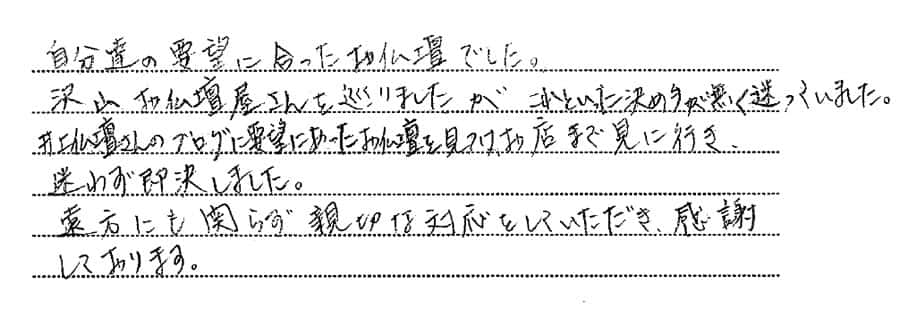 自分達の要望に合ったお仏壇でした。
沢山お仏壇屋さんを巡りましたが これといった決め手が無く迷っていました。
井上仏壇さんのブログに要望にあったお仏壇を見つけ、お店まで見に行き、
迷わず即決しました。
遠方にも関らず親切な対応をしていただき、感謝
しております。